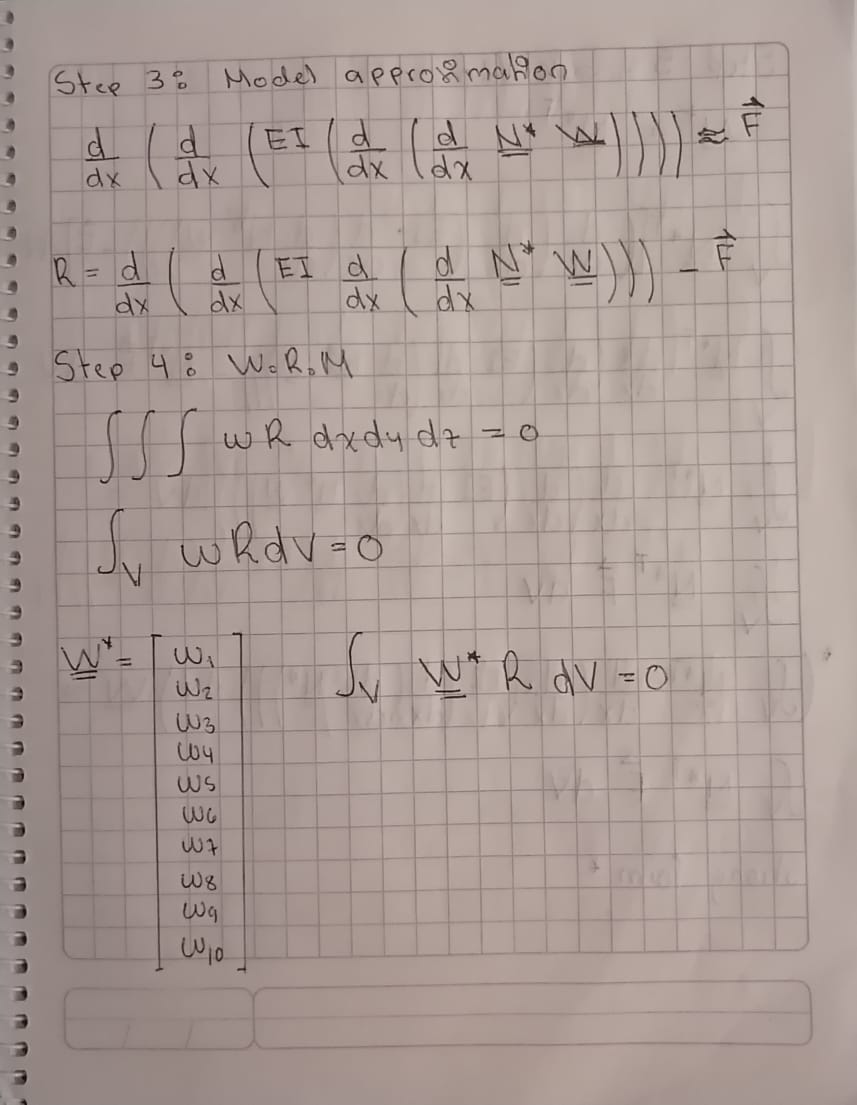 Step 3: Model approximation
d/dx ( d/dx ( EI ( d/dx ( d/dx N* W )))) ≈ F⃗
R = d/dx ( d/dx ( EI d/dx ( d/dx N* W ))) - F⃗
Step 4: W.R.M
∫∫∫ wR dxdydz = 0
∫V wRdV = 0
W* = [ w1 ∫V W* R dV = 0
w2
w3
w4
w5
w6
w7
w8
w9
w10 ]